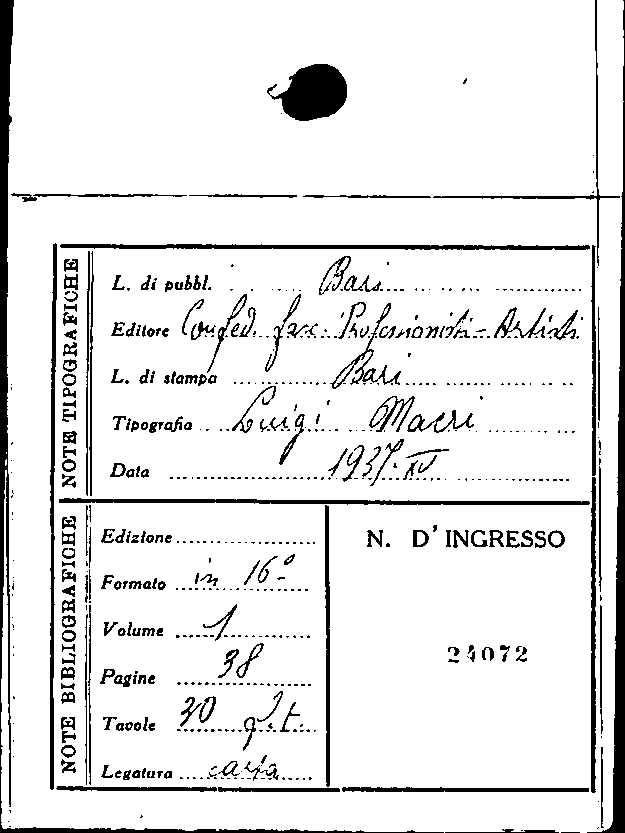 NOTE TIPOGRAFICHE
L. di pubbl. Bari
Editore Confed. fasc. Professionisti - Artisti
L. di stampa Bari
Tipografia Luigi Macrì
Data 1937. XV
NOTE BIBLIOGRAFICHE
Edizione
Formato in 16º
Volume 1
Pagine 38
Tavole 30 f.t.
Legatura carta
N. D'INGRESSO
24072